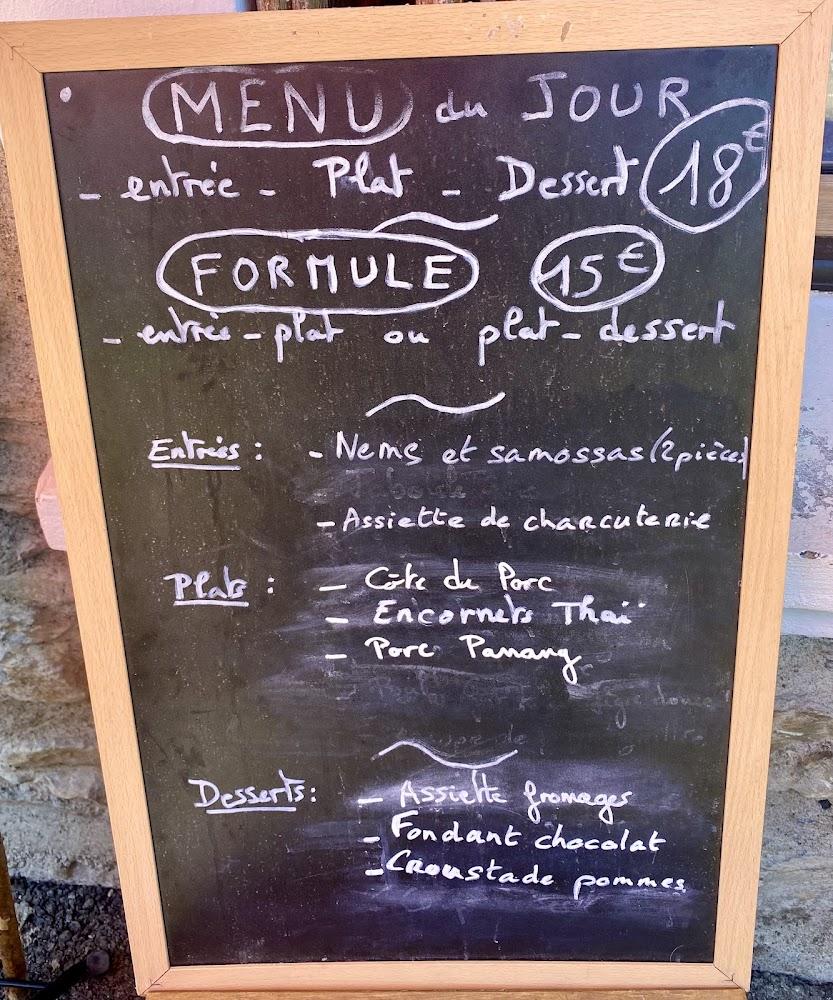 MENU du JOUR
- entrée - Plat - Dessert 18€
FORMULE 15€
- entrée - plat ou plat - dessert
Entrées : - Nems et samossas (2 pièces)
- Assiette de charcuterie
Plats : - Côte de Porc
- Encornets Thaï
- Porc Panang
Desserts : - Assiette fromages
- Fondant chocolat
- Croustade pommes